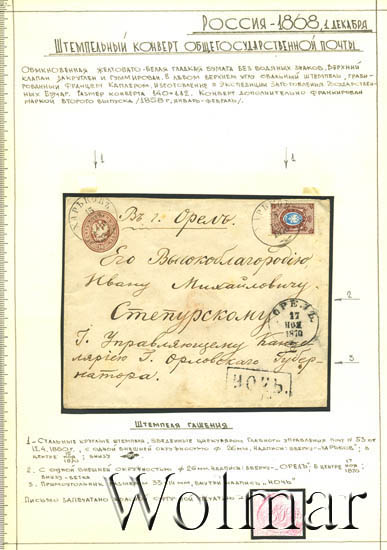 Россия-1868, 1 декабря
Штемпельный конверт общегосударственной почты.
Обыкновенная желтовато-белая гладкая бумага без водяных знаков. Верхний
клапан закруглен и гуммирован. В левом верхнем углу овальный штемпель, грави-
рованный Францем Кеплером, изготовления в Экспедиции Заготовления Государствен-
ных Бумаг. Размер конверта 140×112. Конверт дополнительно франкирован
маркой второго выпуска /1858 г, январь-февраль/.
1
1
ХАРЬКОВЪ
Въ г. Орелъ.
Его Высокоблагородію
Ивану Михайловичу
Степурскому
2
ОРЕЛЪ.
17
НОЯ
1870
Г. Управляющему Канце
лярію Г. Орловскаго Губер-
натора.
3
НОЧЬ.
Штемпеля гашения
1-Стальные круглые штемпеля, введенные циркуляром Главного управления почт N 53 от
12.4.1860г., с одной внешней окружностью ф 26мм, надписи: вверху "Харьков"; в
центре 1870; внизу
2. С одной внешней окружностью ф 26мм, надписи: вверху "Орелъ"; в центре 17 ноя 1870
внизу-ветка
3. Прямоугольник размером 33×14 мм, внутри надпись "Ночь"
Письмо запечатано красной сургучной печатью
Wolmar